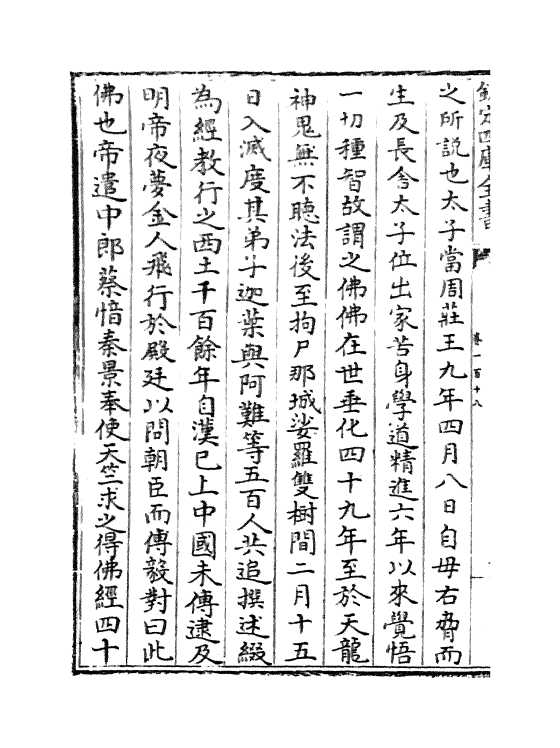 欽定四庫全書
卷一百十八
之所說也太子當周莊王九年四月八日自母右脅而
生及長舎太子位出家苦身學道精進六年以來覺悟
一切種智故謂之佛佛在世垂化四十九年至於天龍
神鬼無不聴法後至拘尸那城娑羅雙樹間二月十五
日入滅度其弟子迦葉與阿難等五百人共追撰述綴
為經教行之西土千百餘年自漢已上中國未傳逮及
明帝夜夢金人飛行於殿廷以問朝臣而傅毅對曰此
佛也帝遣中郎蔡愔秦景奉使天竺求之得佛經四十